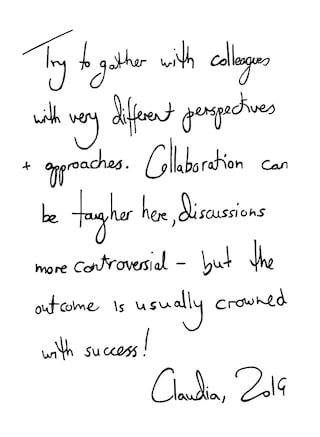 Try to gather with colleagues
with very different perspectives
+ approaches. Collaboration can
be tougher here, discussions
more controversial – but the
outcome is usually crowned
with success!
Claudia, 2019